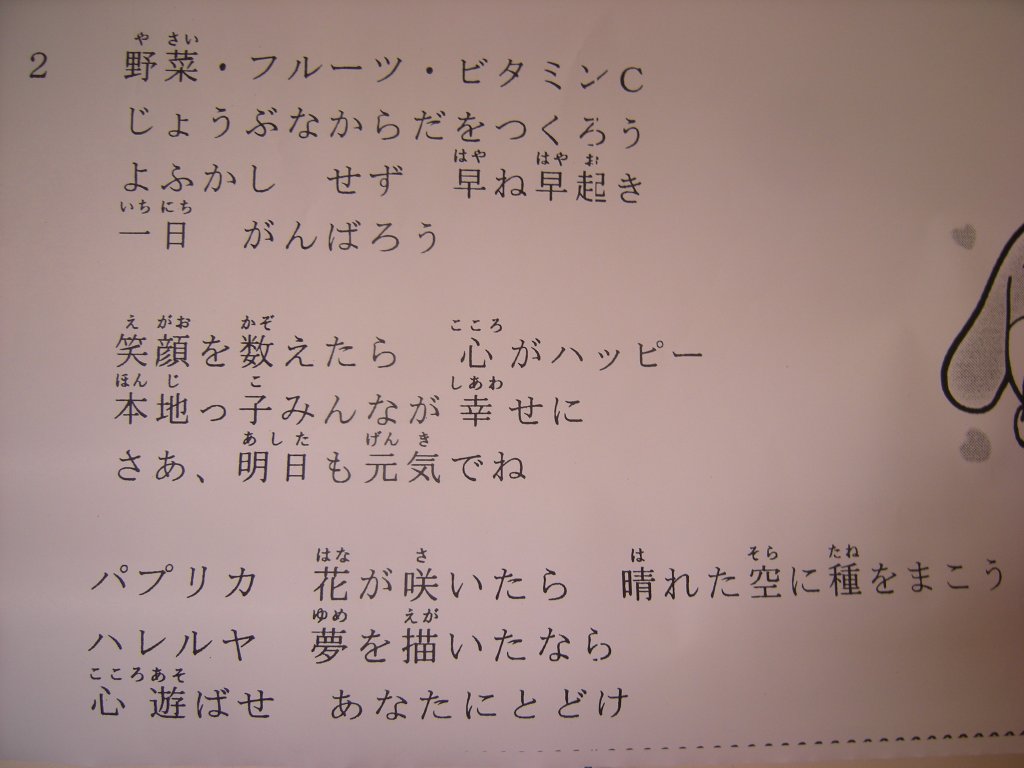 2 野菜・フルーツ・ビタミンC
じょうぶなからだをつくろう
よふかし せず 早ね早起き
一日 がんばろう
笑顔を数えたら 心がハッピー
本地っ子みんなが幸せに
さあ、明日も元気でね
パプリカ 花が咲いたら 晴れた空に種をまこう
ハレルヤ 夢を描いたなら
心遊ばせ あなたにとどけ